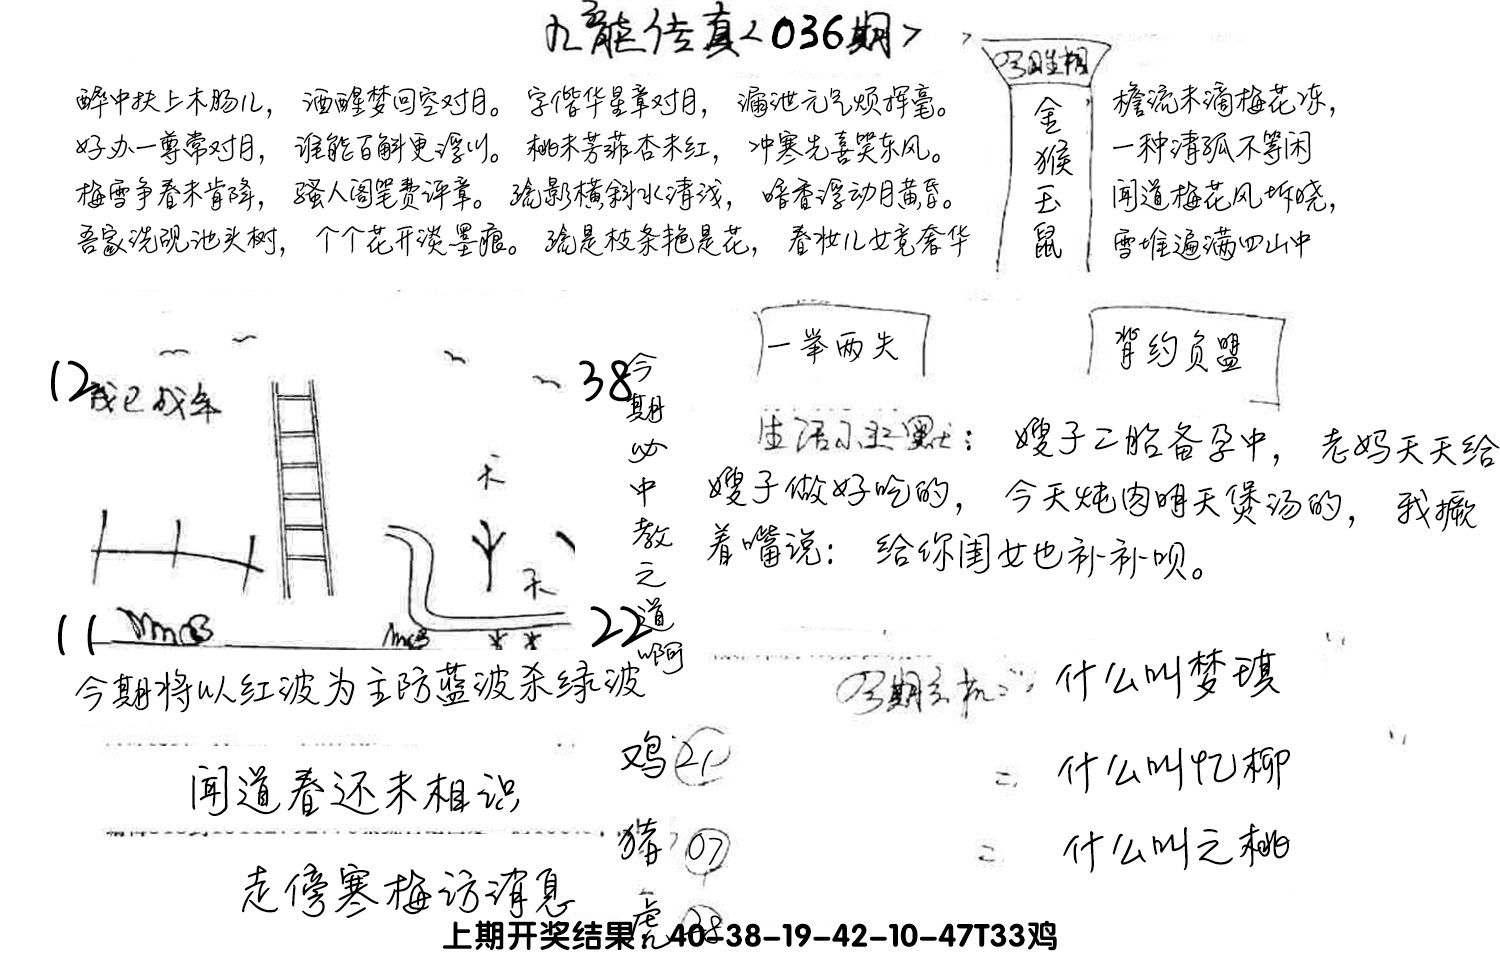 九龙传真<036期>
醉中扶上木肠儿， 酒醒梦回空对月。 字偕华星章对月， 漏泄元气烦挥毫。
好办一尊常对月， 谁能百斛更浮川。 桃未芳菲杏未红， 冲寒先喜笑东风。
梅雪争春未肯降， 骚人阁笔费评章。 疏影横斜水清浅， 暗香浮动月黄昏。
吾家洗砚池头树， 个个花开淡墨痕。 疏是枝条艳是花， 春妆儿女竞奢华
金猴玉鼠
檐流未滴梅花冻，
一种清孤不等闲
闻道梅花风坼晓，
雪堆遍满四山中
一举两失
背约负盟
12
我已成年
38
天
天
11
22
今期必中教之道啊
生活小幽默： 嫂子二胎备孕中， 老妈天天给
嫂子做好吃的， 今天炖肉明天煲汤的， 我撅
着嘴说： 给你闺女也补补呗。
今期将以红波为主防蓝波杀绿波
闻道春还未相识
走傍寒梅访消息
鸡 21
猪 07
虎 38
什么叫梦琪
= 什么叫忆柳
= 什么叫之桃
上期开奖结果：40-38-19-42-10-47T33鸡